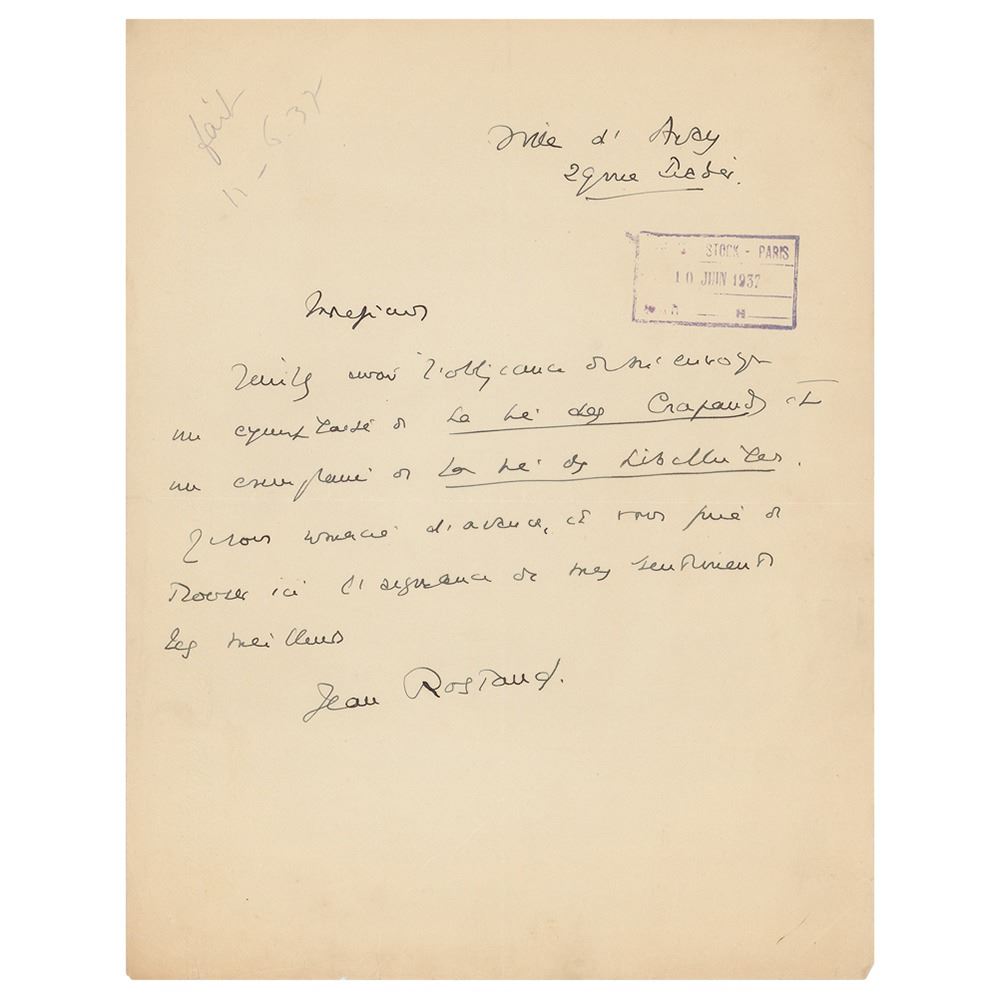 fait
11-6-37
Ville d'Avray
29 rue Pradier.
STOCK - PARIS
10 JUIN 1937
H
Monsieur
Veuillez avoir l'obligeance de m'envoyer
un exemplaire de La Vie des Crapauds et
un exemplaire de La Vie des Libellules.
Je vous remercie d'avance, et vous prie de
trouver ici l'assurance de mes sentiments
les meilleurs
Jean Rostand.